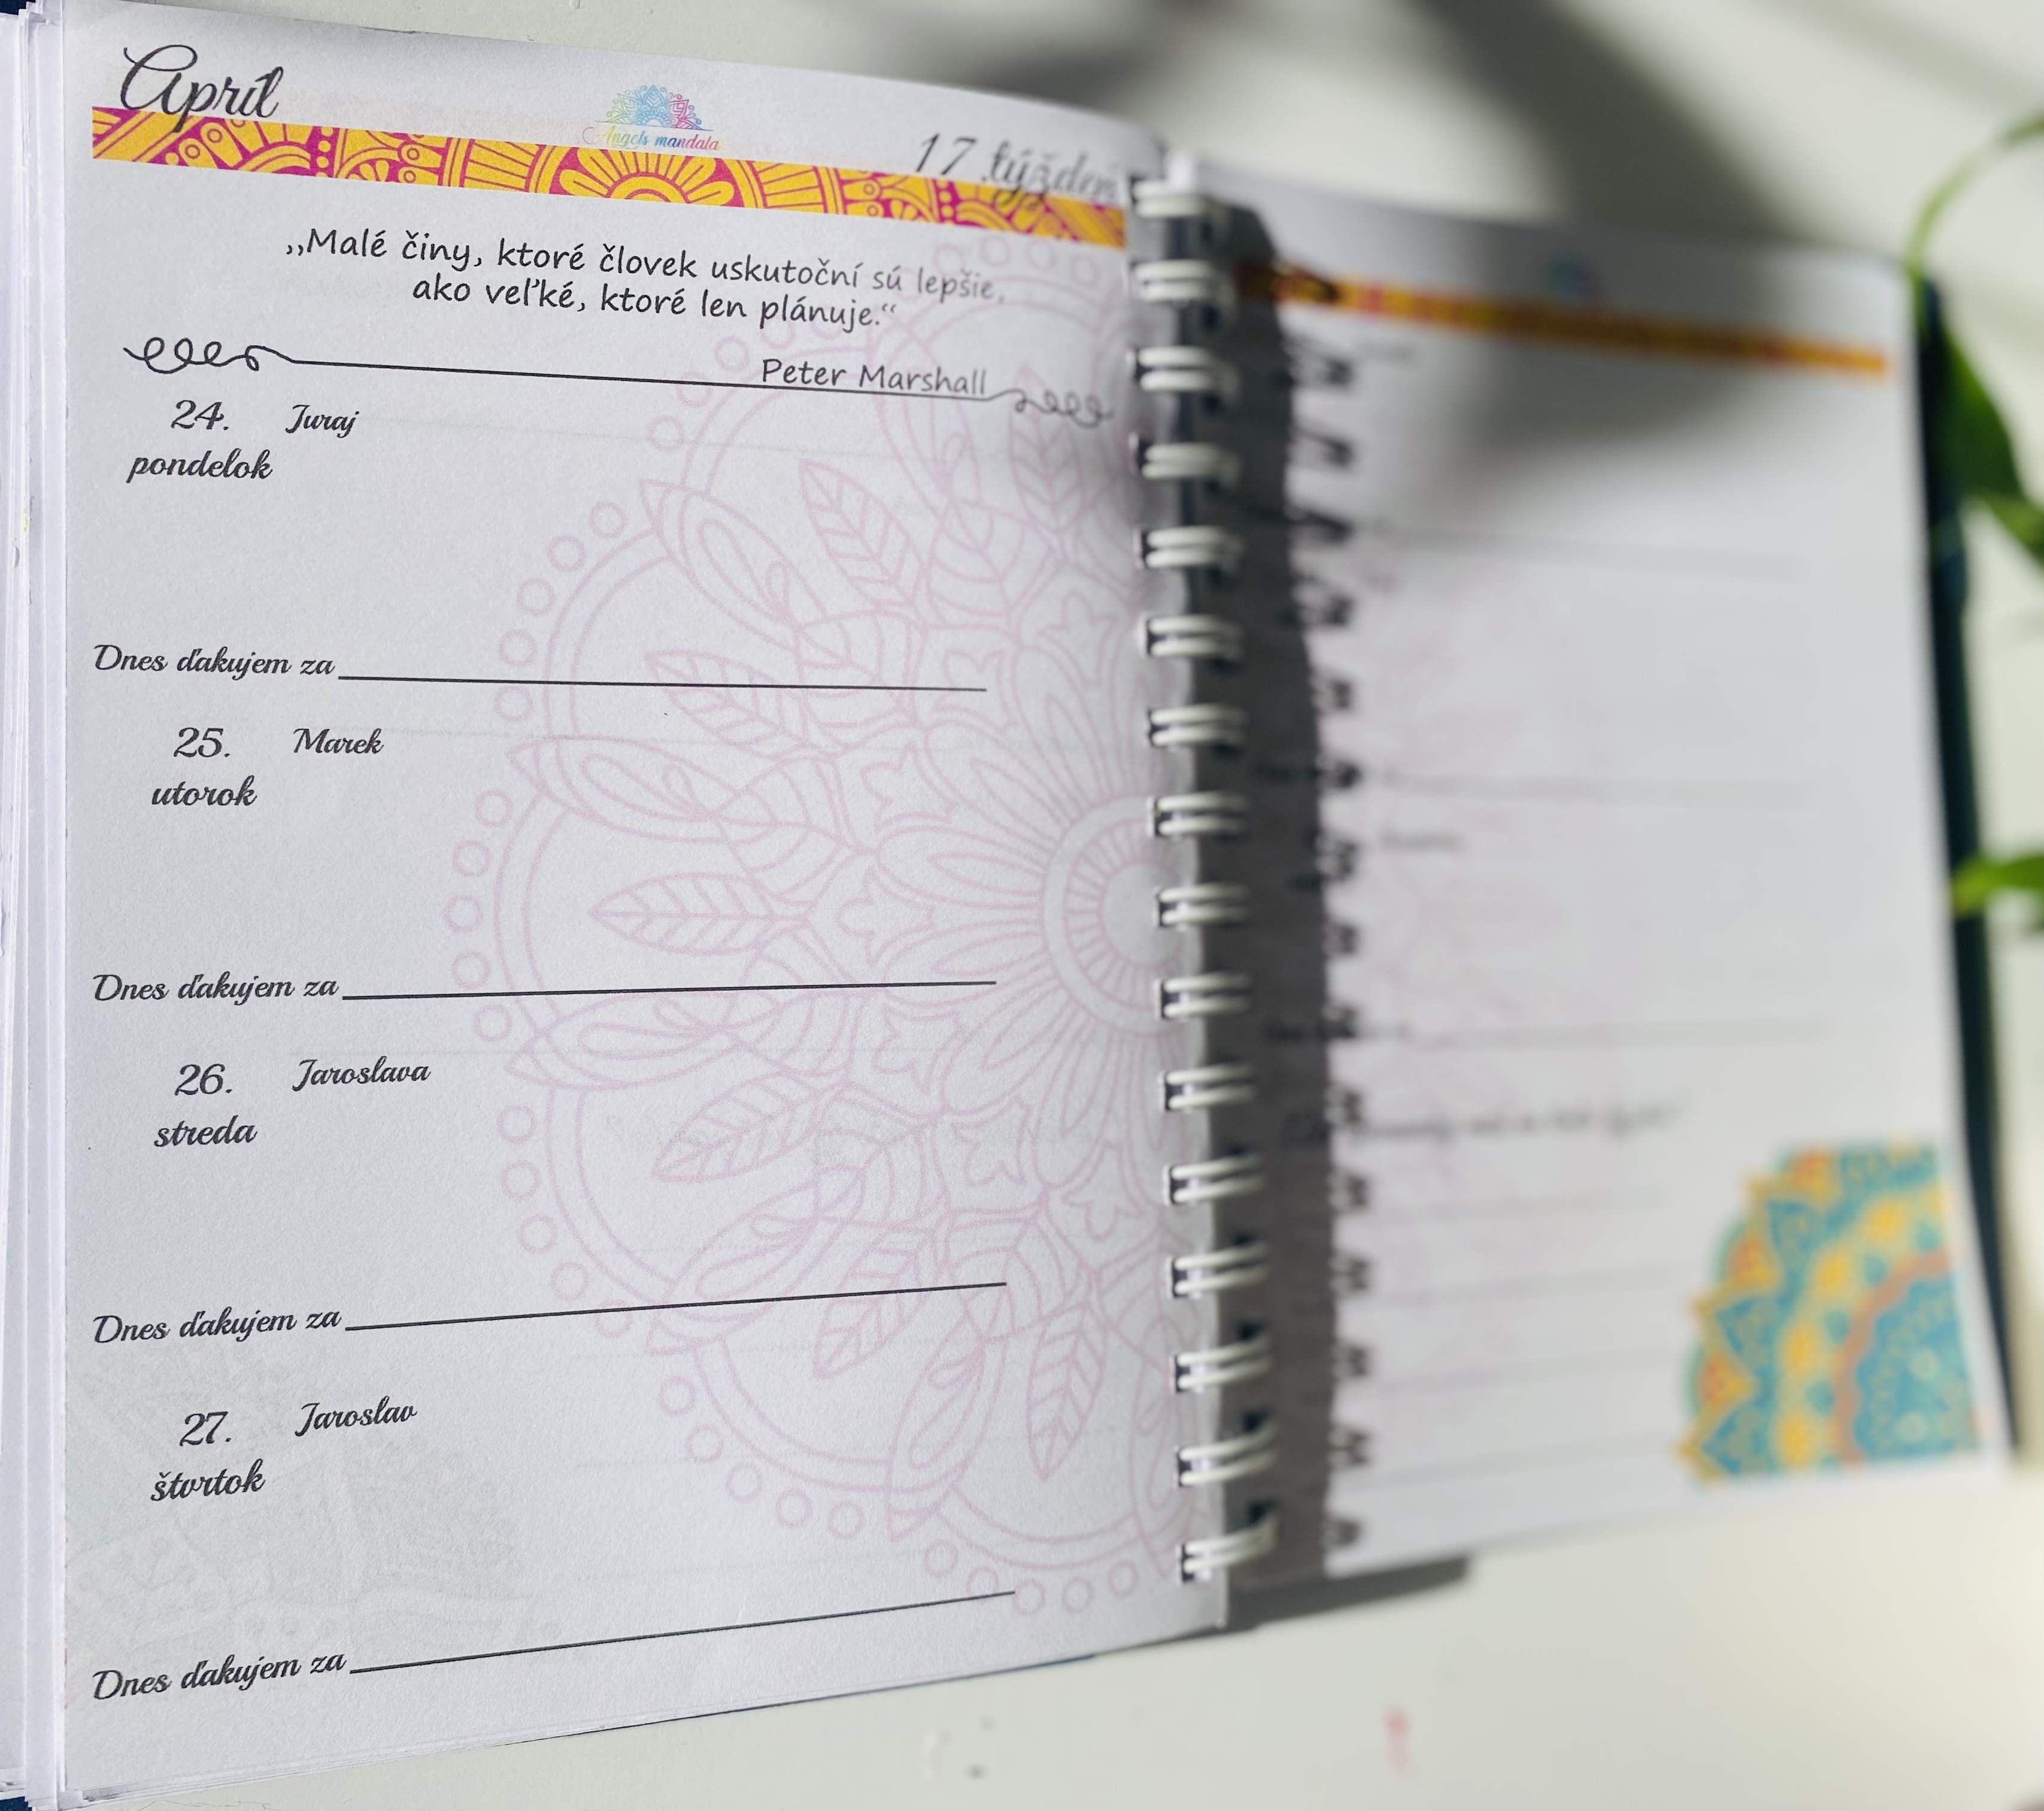 Apríl
Angels mandala
17 .týždeň
„Malé činy, ktoré človek uskutoční sú lepšie,
ako veľké, ktoré len plánuje.“
Peter Marshall
24. Juraj
pondelok
Dnes ďakujem za
25. Marek
utorok
Dnes ďakujem za
26. Jaroslava
streda
Dnes ďakujem za
27. Jaroslav
štvrtok
Dnes ďakujem za